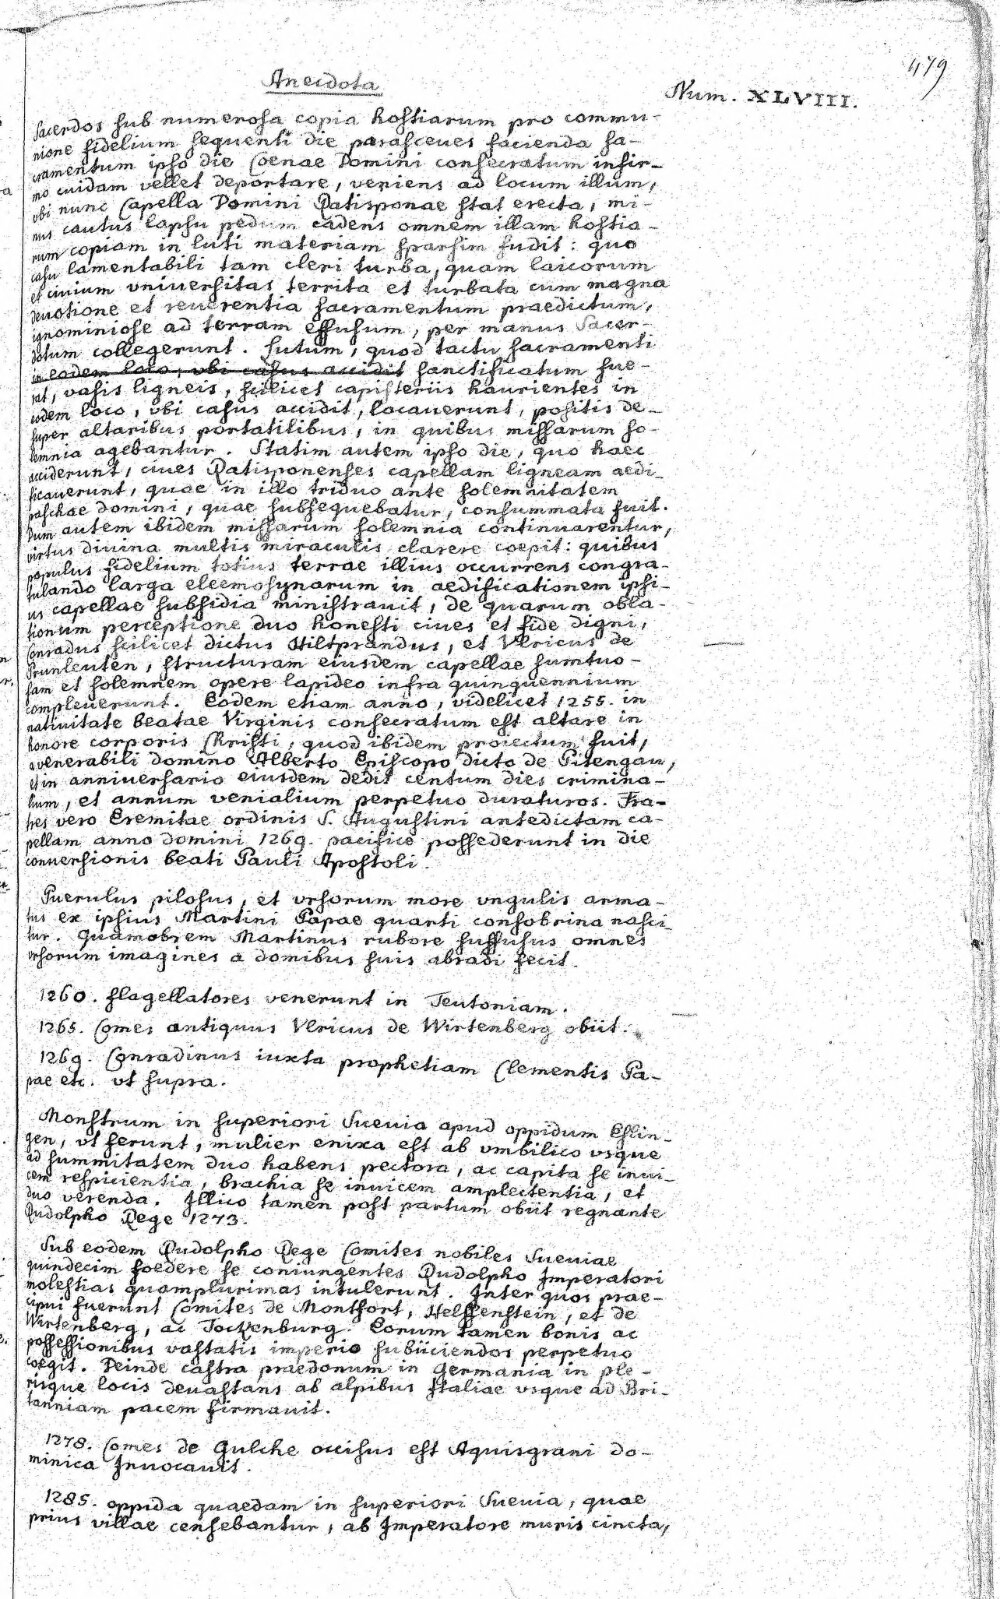 479
Anecdota
Num. XLVIII.
Sacerdos sub numerosa copia hostiarum pro commu-
nione fidelium sequenti die parasceues facienda sa-
cramentum ipso die Coenae Domini consecratum infir-
mo cuidam vellet deportare, veniens ad locum illum,
vbi nunc Capella Domini Ratisponae stat erecta, mi-
nus cautus lapsu pedum cadens omnem illam hostia-
rum copiam in luti materiam sparsim fudit: quo
casu lamentabili tam cleri turba, quam laicorum
et ciuium vniuersitas territa et turbata cum magna
deuotione et reuerentia sacramentum praedictum,
ignominiose ad terram effusum, per manus Sacer-
dotum collegerunt. Lutum, quod tactu sacramenti
in eodem loco, vbi casus accidit sanctificatum fue-
rat, vasis ligneis, scilicet capisteriis haurientes in
eodem loco, vbi casus accidit, locauerunt, positis de-
super altaribus portatilibus, in quibus missarum so-
lemnia agebantur. Statim autem ipso die, quo haec
acciderunt, ciues Ratisponenses capellam ligneam aedi-
ficauerunt, quae in illo triduo ante solemnitatem
paschae domini, quae subsequebatur, consummata fuit.
Dum autem ibidem missarum solemnia continuarentur,
virtus diuina multis miraculis clarere coepit: quibus
populus fidelium totius terrae illius occurrens congra-
tulando larga eleemosynarum in aedificationem ipsi-
us capellae subsidia ministrauit, de quarum obla-
tionum perceptione duo honesti ciues et fide digni,
Conradus scilicet dictus Hiltprandus, et Vlricus de
Prunleuten, structuram eiusdem capellae sumtuo-
sam et solemnem opere lapideo infra quinquennium
compleuerunt. Eodem etiam anno, videlicet 1255. in
natiuitate beatae Virginis consecratum est altare in
honore corporis Christi, quod ibidem proiectum fuit,
a venerabili domino Alberto Episcopo dicto de Pitengau,
et in anniuersario eiusdem dedit centum dies crimina-
lium, et annum venialium perpetuo duraturos. Fra-
tres vero Eremitae ordinis S. Augustini antedictam ca-
pellam anno domini 1269. pacifice possederunt in die
conuersionis beati Pauli Apostoli.
Puerulus pilosus, et vrsorum more vngulis arma-
tus ex ipsius Martini Papae quarti consobrina nasci
tur. Quamobrem Martinus rubore suffusus omnes
vrsorum imagines a domibus suis abradi fecit.
1260. flagellatores venerunt in Teutoniam.
1265. Comes antiquus Vlricus de Wirtenberg obiit.
1269. Conradinus iuxta prophetiam Clementis Pa-
pae etc. vt supra.
Monstrum in superiori Sueuia apud oppidum Eslin-
gen, vt ferunt, mulier enixa est ab vmbilico vsque
ad summitatem duo habens pectora, ac capita se inui-
cem respicientia, brachia se inuicem amplectentia, et
duo verenda. Illico tamen post partum obiit regnante
Rudolpho Rege 1273.
Sub eodem Rudolpho Rege Comites nobiles Sueuiae
quindecim foedere se coniungentes Rudolpho Imperatori
molestias quamplurimas intulerunt. Inter quos prae-
cipui fuerunt Comites de Montfort, Helffenstein, et de
Wirtenberg, ac Tockenburg. Eorum tamen bonis ac
possessionibus vastatis imperio subiiciendos perpetuo
coegit. Deinde castra praedonum in Germania in ple-
risque locis deuastans ab alpibus Italiae vsque ad Bri-
tanniam pacem firmauit.
1278. Comes de Gulche occisus est Aquisgrani do-
minica Inuocauit.
1285. oppida quaedam in superiori Sueuia, quae
prius villae censebantur, ab Imperatore muris cincta,